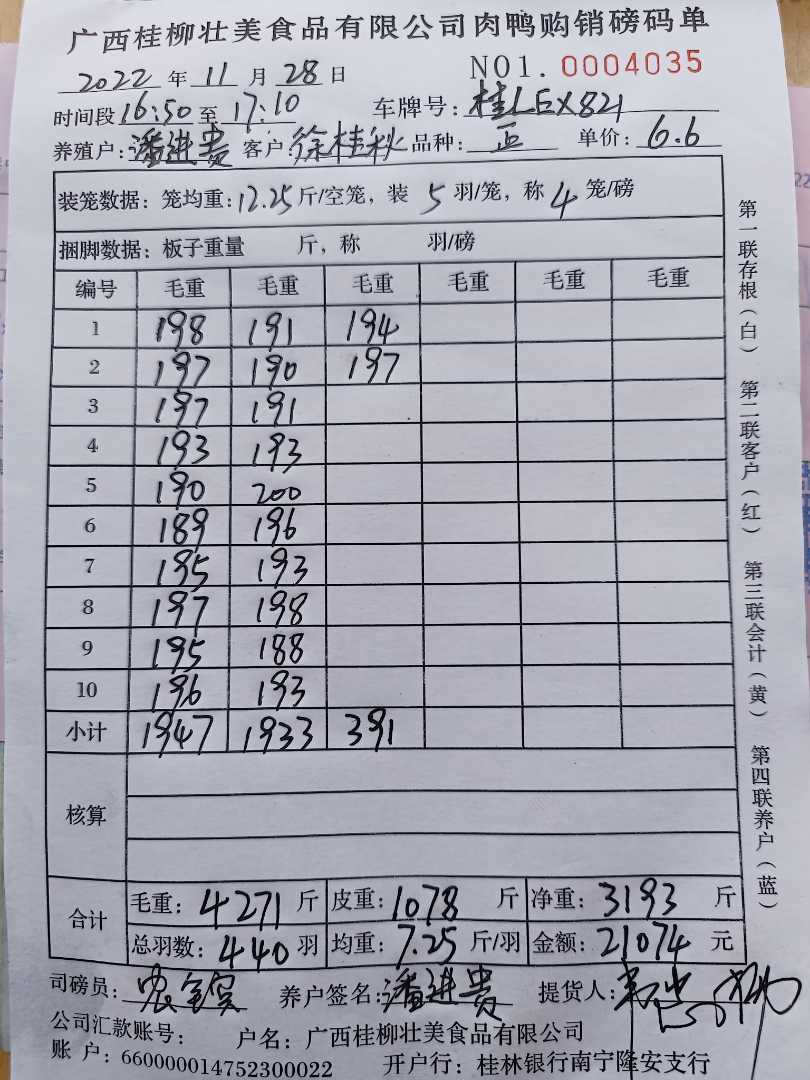 广西桂柳壮美食品有限公司肉鸭购销磅码单
2022 年 11 月 28 日 NO1. 0004035
时间段 16:50 至 17:10 车牌号: 桂LEX821
养殖户: 潘进贵 客户: 徐桂秋 品种: 正 单价: 6.6
装笼数据: 笼均重: 12.25 斤/空笼, 装 5 羽/笼, 称 4 笼/磅
捆脚数据: 板子重量 斤, 称 羽/磅
编号 毛重 毛重 毛重 毛重 毛重 毛重
1 198 191 194
2 197 190 197
3 197 191
4 193 193
5 190 200
6 189 196
7 195 193
8 197 198
9 195 188
10 196 193
小计 1947 1933 391
核算
合计
毛重: 4271 斤 皮重: 1078 斤 净重: 3193 斤
总羽数: 440 羽 均重: 7.25 斤/羽 金额: 21074 元
司磅员: 养户签名: 潘进贵 提货人:
公司汇款账号: 户名: 广西桂柳壮美食品有限公司
账 户: 660000014752300022 开户行: 桂林银行南宁隆安支行
第一联存根(白) 第二联客户(红) 第三联会计(黄) 第四联养户(蓝)